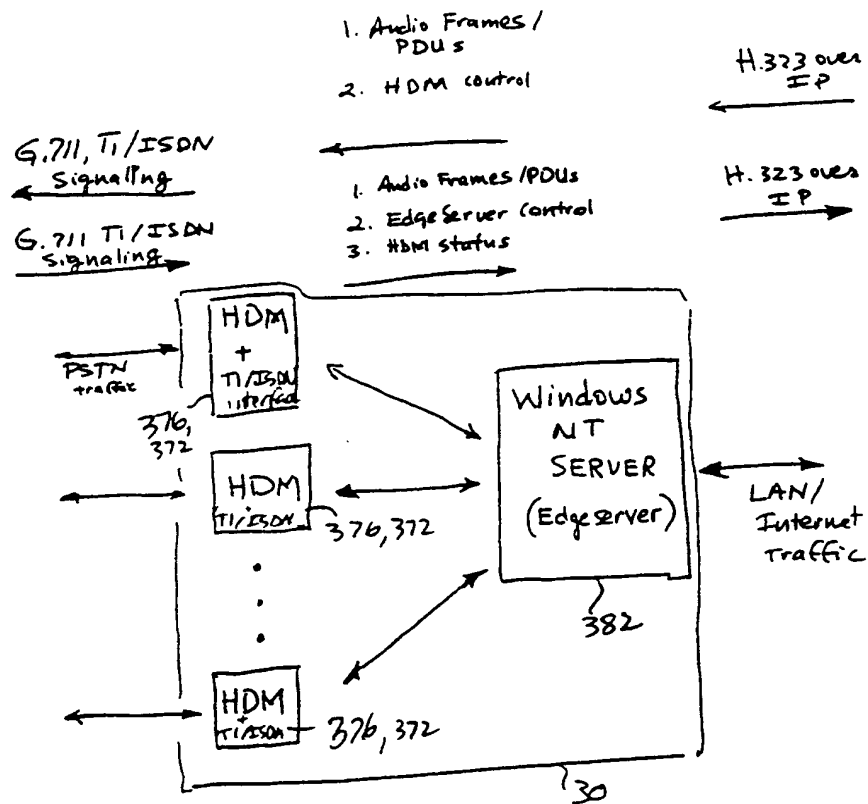 1. Audio Frames /
PDUs
2. HDM control
H.323 over
IP
G.711, T1/ISDN
Signaling
1. Audio Frames/PDUs
2. EdgeServer Control
3. HDM status
H.323 over
IP
G.711 T1/ISDN
Signaling
HDM
+
T1/ISDN
interface
PSTN
traffic
376,
372
Windows
NT
SERVER
(Edgeserver)
LAN/
Internet
Traffic
HDM
T1/ISDN
376,372
382
HDM
+
T1/ISDN
376,372
30